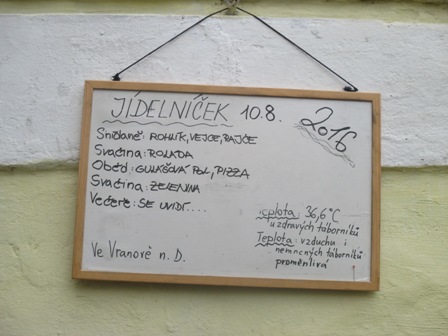 JÍDELNÍČEK 10.8. 2016
Snídaně: ROHLÍK, VEJCE, RAJČE
Svačina: ROLÁDA
Oběd: GULÁŠOVÁ POL, PIZZA
Svačina: ZELENINA
Večeře: SE UVIDÍ....
Teplota: 36,6°C
u zdravých táborníků
Teplota: vzduchu i
nemocných táborníků
proměnlivá
Ve Vranově n. D.